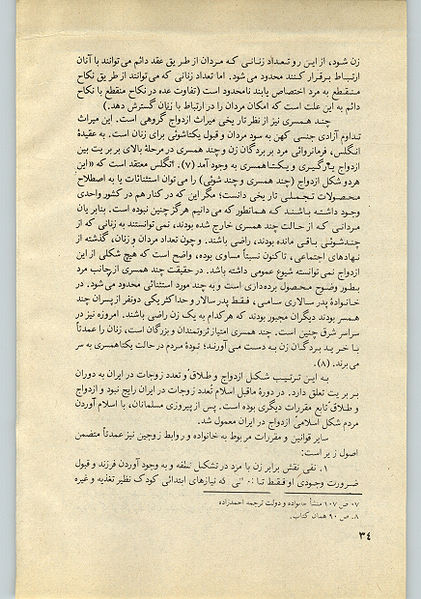 زن شود، از این رو تعداد زنانی که مردان از طریق عقد دائم می‌توانند با آنان
ارتباط برقرار کنند محدود می‌شود. اما تعداد زنانی که می‌توانند از طریق نکاح
منقطع به مرد اختصاص یابند نامحدود است (تفاوت عده در نکاح منقطع با نکاح
دائم به این علت است که امکان مردان را در ارتباط با زنان گسترش دهد.)
چند همسری نیز از نظر تاریخی میراث ازدواج گروهی است. این میراث
تداوم آزادی جنسی کهن به سود مردان و قبول یکتاشوئی برای زنان است. به عقیدهٔ
انگلس، فرمانروائی مرد بر بردگان زن و چند همسری در مرحلهٔ بالای بربریت بین
ازدواج یارگیری و یکتاهمسری به وجود آمد (۷). انگلس معتقد است که «این
هر دو شکل ازدواج (چند همسری و چند شوئی) را می‌توان استثنائات یا به اصطلاح
محصولات تجملی تاریخی دانست؛ مگر این که در کنار هم در کشور واحدی
وجود داشته باشند که همانطور که می‌دانیم هرگز چنین نبوده است. بنابر یان
مردانی که از حالت چند همسری خارج شده بودند، نمی‌توانستند به زنانی که از
چندشوئی باقی مانده بودند، راضی باشند. و چون تعداد مردان و زنان، گذشته از
نهادهای اجتماعی، تاکنون نسبتاً مساوی بوده، واضح است که هیچ شکلی از این
ازدواج نمی‌توانسته شیوع عمومی داشته باشد. در حقیقت چند همسری از جانب مرد
بطور وضوح محصول برده‌داری است و به چند مورد استثنائی محدود می‌شود. در
خانوادهٔ پدر سالاری سامی، فقط پدر سالار و حداکثر یکی دو نفر از پسران چند
همسر بودند دیگران مجبور بودند که هرکدام به یک زن راضی باشند. امروزه نیز در
سراسر شرق چنین است. چند همسری امتیاز ثروتمندان و بزرگان است، زنان را عمدتاً
با خرید بردگان زن به دست می‌آورند؛ تودهٔ مردم در حالت یکتاهمسری به سر
می‌برند. (۸).
به این ترتیب شکل ازدواج و طلاق و تعدد زوجات در ایران به دوران
بربریت تعلق دارد. در دورهٔ ماقبل اسلام تعدد زوجات در ایران رایج نبود و ازدواج
و طلاق تابع مقررات دیگری بوده است. پس از پیروزی مسلمانان، با اسلام آوردن
مردم شکل اسلامی ازدواج در ایران معمول شد.
سایر قوانین و مقررات مربوط به خانواده و روابط زوجین نیز عمدتاً متضمن
اصول زیر است:
۱. نفی نقش برابر زن با مرد در تشکل نطفه و به وجود آوردن فرزند و قبول
ضرورت وجودی او فقط تا که نیازهای ابتدائی کودک نظیر تغذیه و غیره
۷. ص ۱۰۷ منشأ خانواده و دولت ترجمه احمدزاده
۸. ص ۹۰ همان کتاب.
۳۴